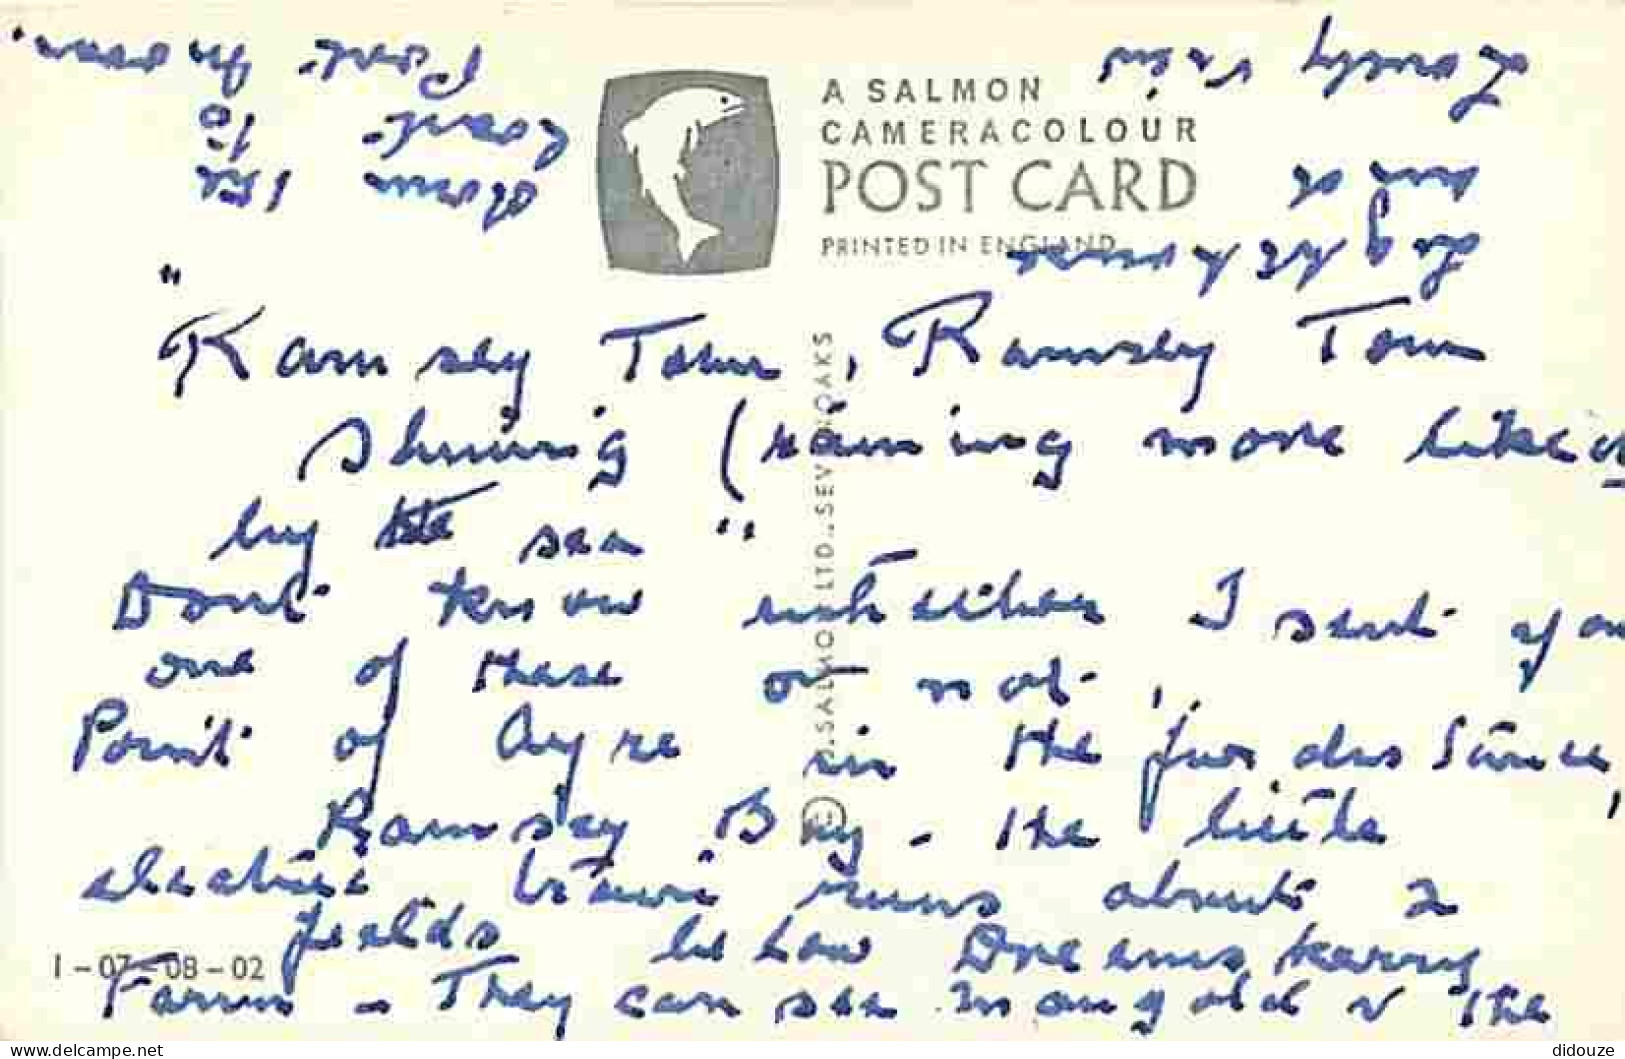 A SALMON
CAMERACOLOUR
POST CARD
PRINTED IN ENGLAND
"Ramsey Town, Ramsey Town
Shining (raining more like it
by the sea"
Dont know whether I sent you
one of these or not.
Point of Ayre in the far distance,
Ramsey Bay - the little
electric train runs about 2
fields below Dreemskerry
Farm - They can see Maughold v the
down the
coast to
Port Mooar.
Lovely view
J. SALMON LTD., SEVENOAKS
1-07-08-02
https://www.delcampe.net
didouze